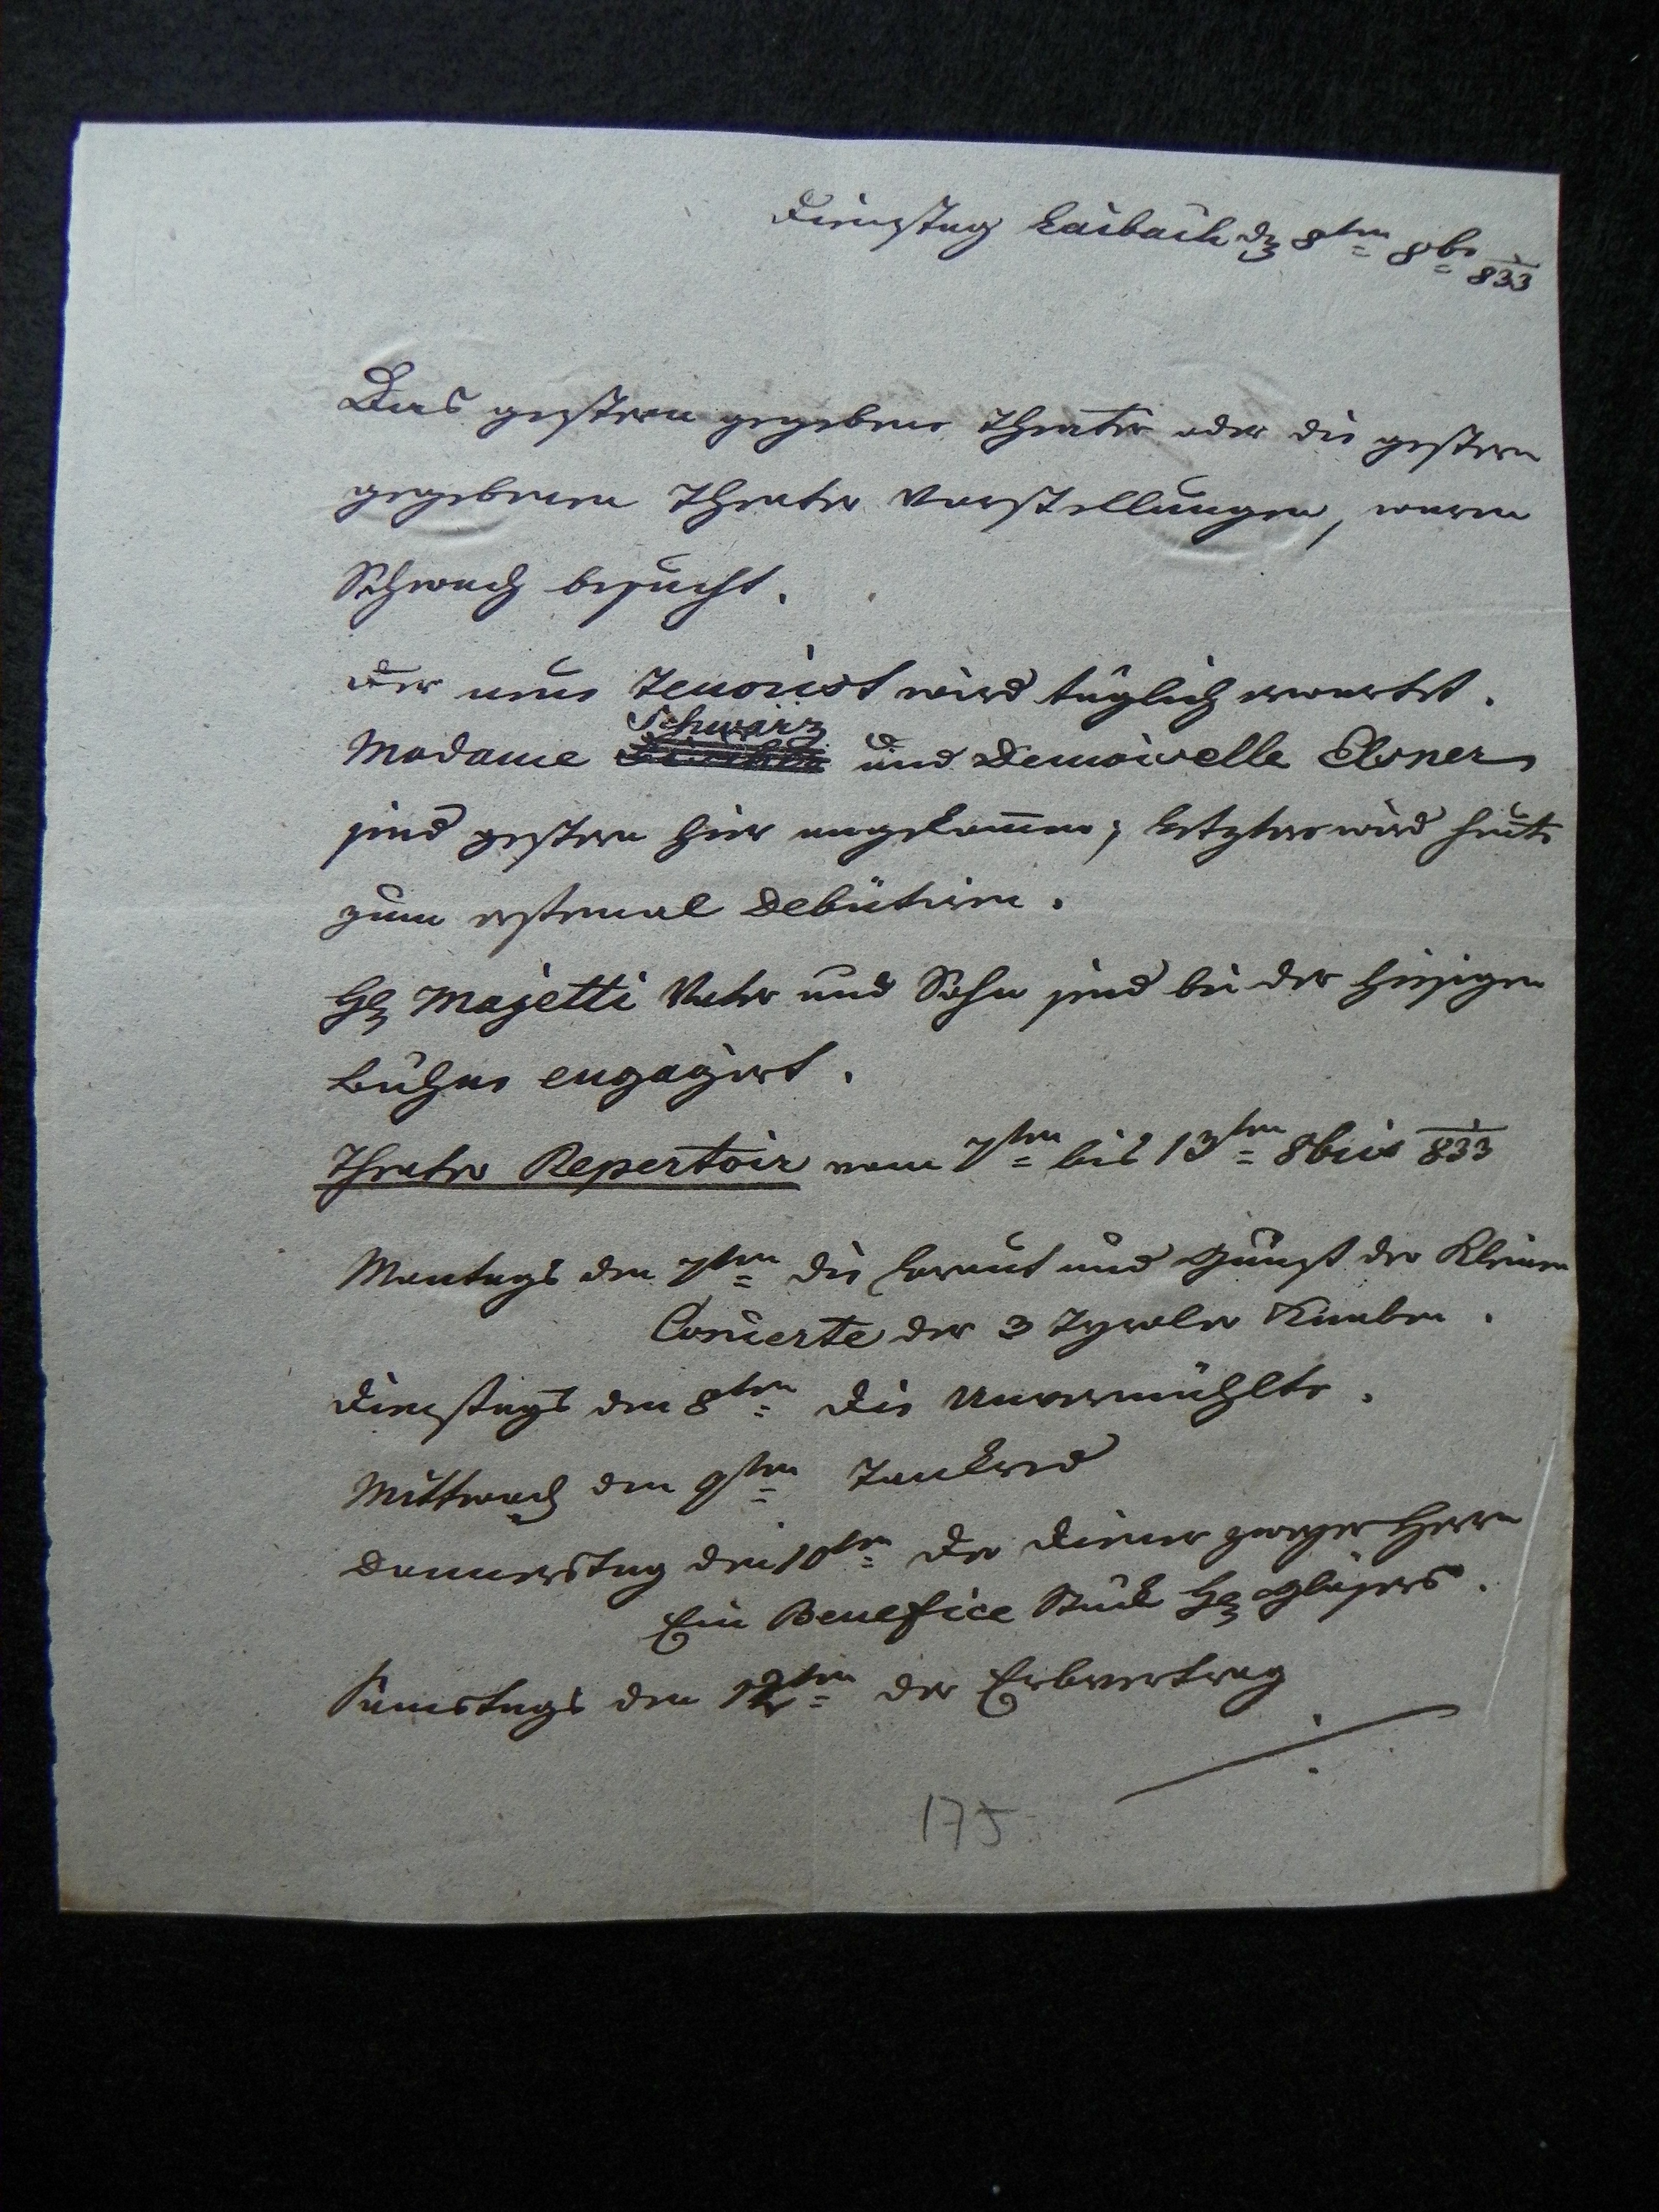 Dienstag Laibach dn 8ten 8br 833
Das gestern gegebene Theater oder die gestern
gegebenen Theater Vorstellungen, waren
Schwach besucht.
Der neue Tenorist wird täglich erwartet.
Schwarz
Madame und Demoiselle Elsner
sind gestern hier angekommen; letztere wird heute
zum erstenmal Debütiren.
Hr Majetti Vater und Sohn sind bei der hiesigen
Bühne engagirt.
Theater Repertoir vom 7ten bis 13ten 8bris 833
Montags den 7ten die und Gunst der Kleinen
Concerte der 3 Tyroler Knaben.
Dienstags den 8ten die Unvermählte.
Mittwoch den 9ten Tankred
Donnerstag den 10ten der Diener zweyer Herrn
Ein Benefice Stück Hr Gläsers.
Samstags den 12ten der Erbvertrag
175